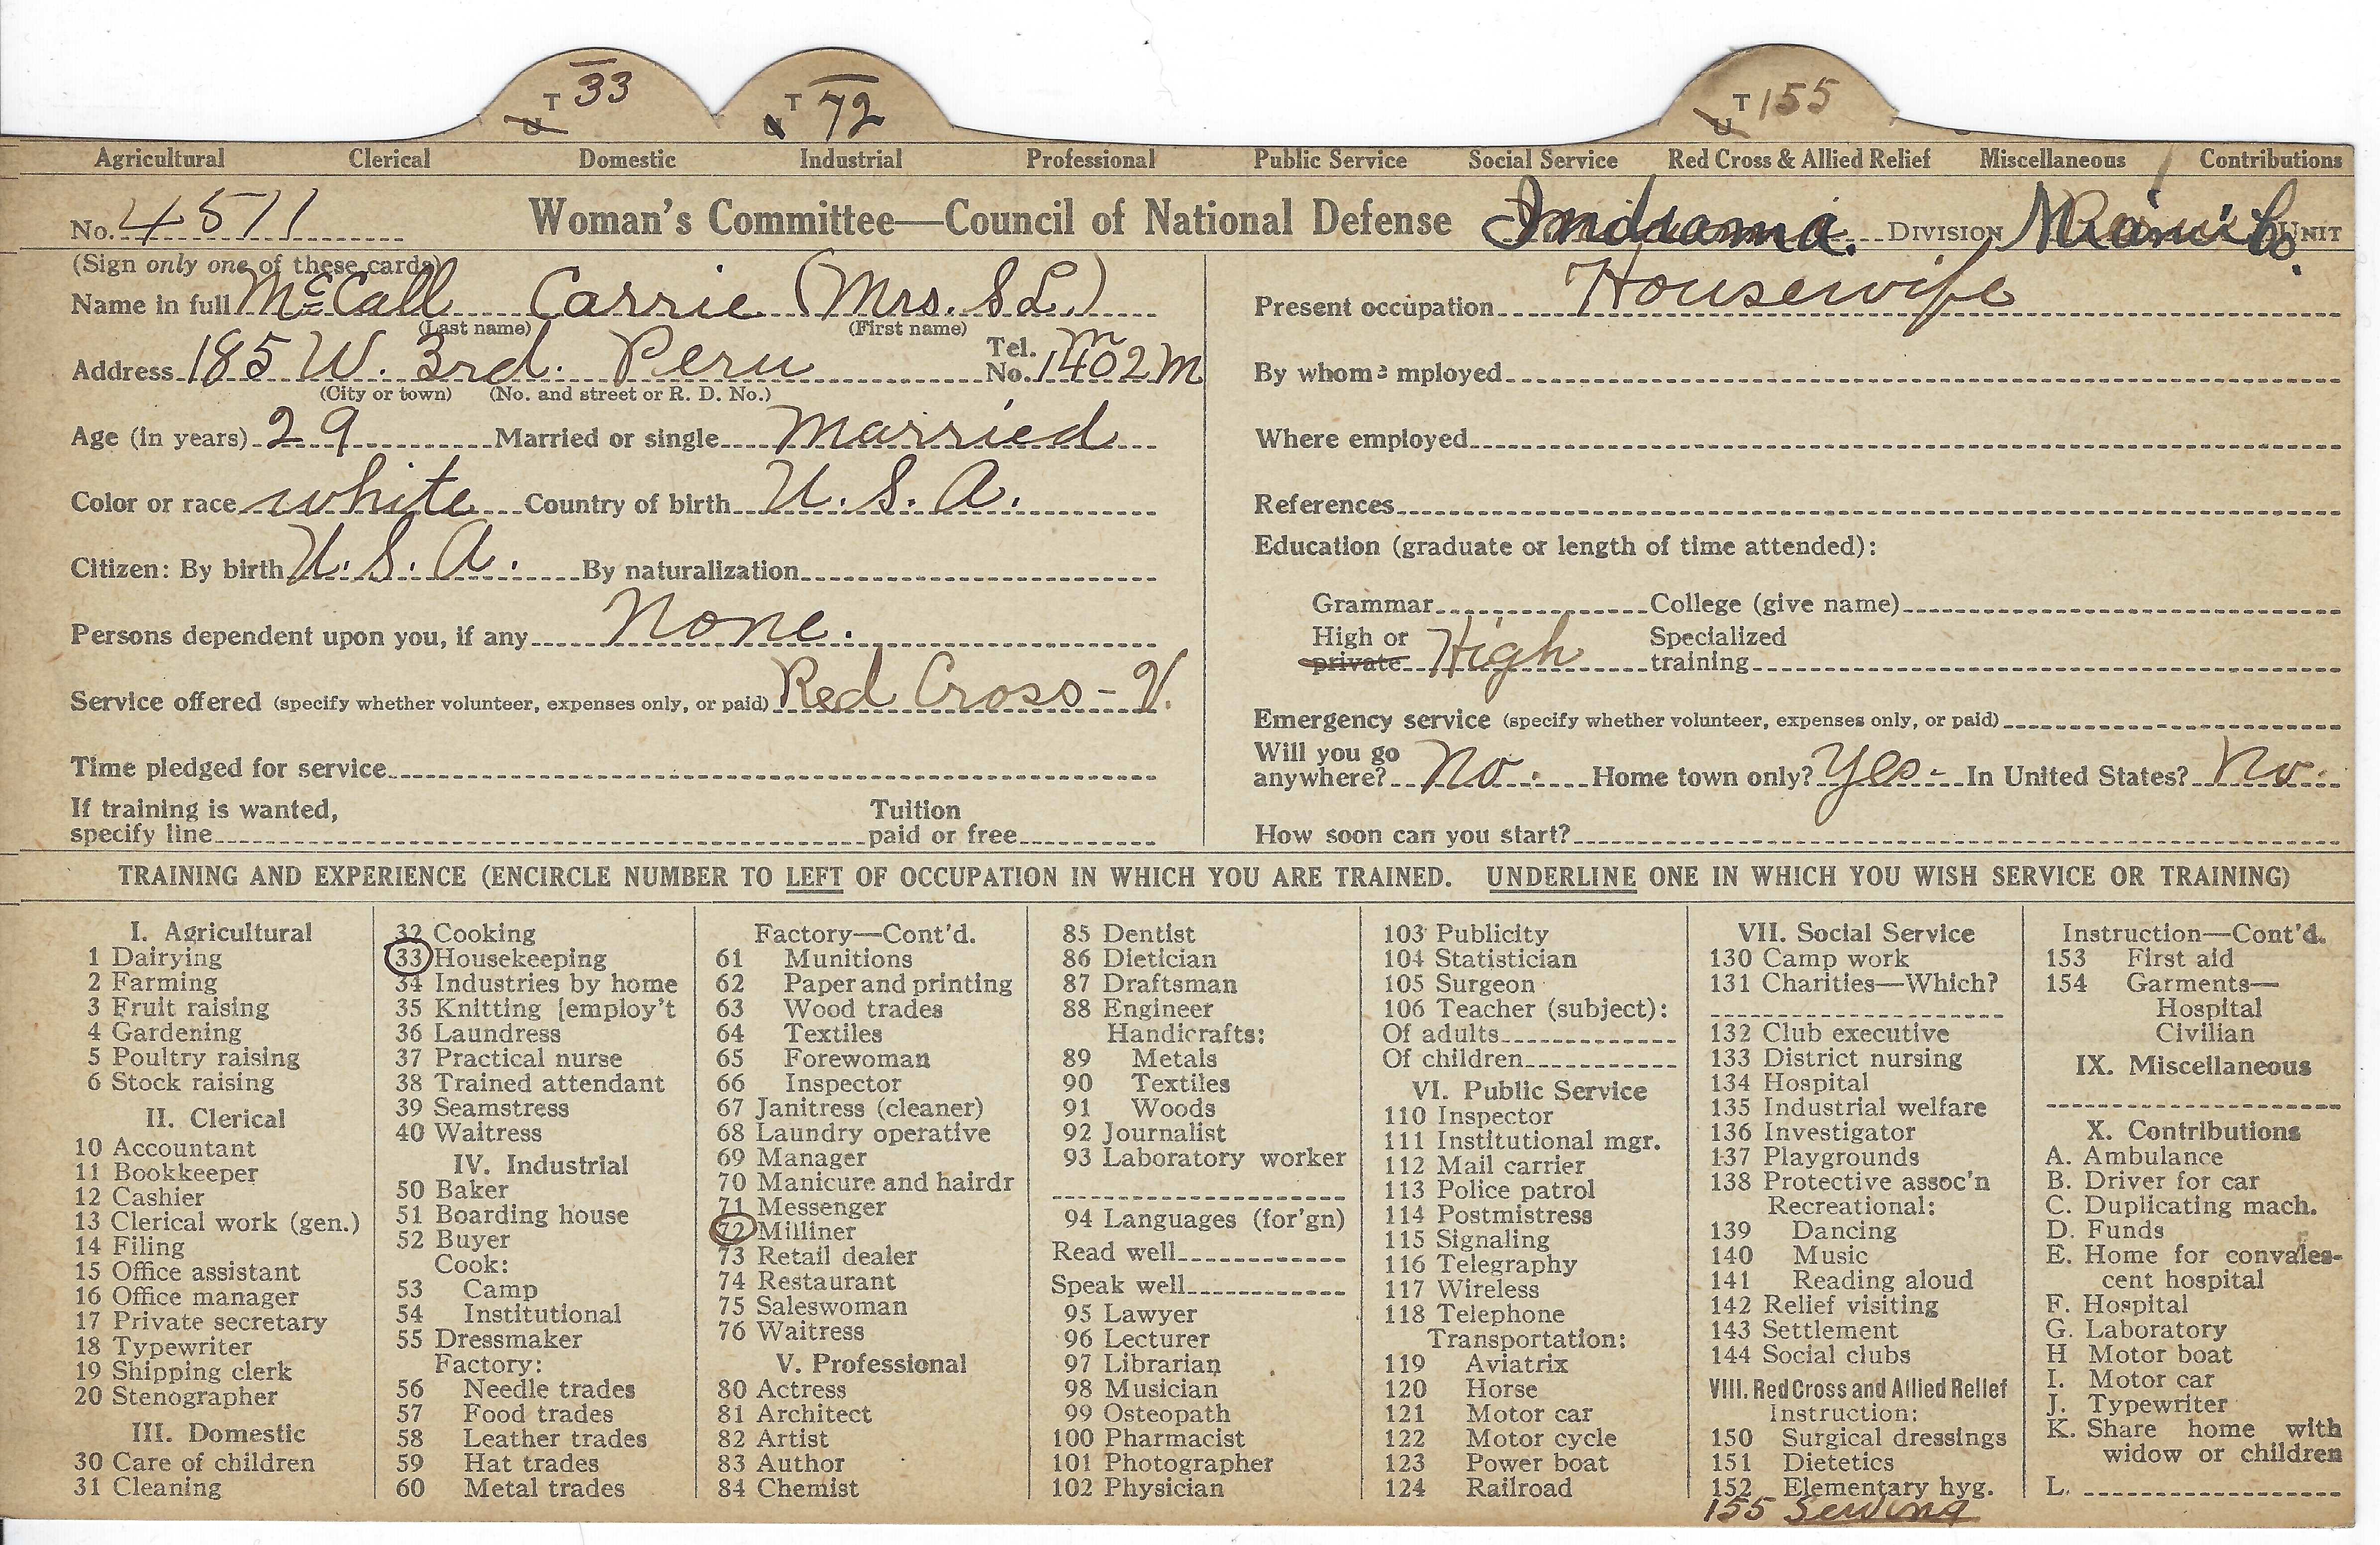 T 33 T 72 T 155
U U
Agricultural Clerical Domestic Industrial Professional Public Service Social Service Red Cross & Allied Relief Miscellaneous Contributions
No. 4511 Woman's Committee—Council of National Defense Indiana. DIVISION Miami Co. UNIT
(Sign only one of these cards)
Name in full McCall Carrie (Mrs. S L.)
(Last name) (First name)
Address 185 W. 3rd. Peru Tel. No. 1402 M
(City or town) (No. and street or R. D. No.)
Age (in years) 29 Married or single Married
Color or race white Country of birth U. S. A.
Citizen: By birth U. S. A. By naturalization
Persons dependent upon you, if any None.
Service offered (specify whether volunteer, expenses only, or paid) Red Cross - V.
Time pledged for service
If training is wanted,
specify line
Tuition
paid or free
Present occupation Housewife
By whom employed
Where employed
References
Education (graduate or length of time attended):
Grammar College (give name)
High or private High Specialized training
Emergency service (specify whether volunteer, expenses only, or paid)
Will you go anywhere? No. Home town only? Yes- In United States? No.
How soon can you start?
TRAINING AND EXPERIENCE (ENCIRCLE NUMBER TO LEFT OF OCCUPATION IN WHICH YOU ARE TRAINED. UNDERLINE ONE IN WHICH YOU WISH SERVICE OR TRAINING)
I. Agricultural
1 Dairying
2 Farming
3 Fruit raising
4 Gardening
5 Poultry raising
6 Stock raising
II. Clerical
10 Accountant
11 Bookkeeper
12 Cashier
13 Clerical work (gen.)
14 Filing
15 Office assistant
16 Office manager
17 Private secretary
18 Typewriter
19 Shipping clerk
20 Stenographer
III. Domestic
30 Care of children
31 Cleaning
32 Cooking
33 Housekeeping
34 Industries by home
35 Knitting [employ't
36 Laundress
37 Practical nurse
38 Trained attendant
39 Seamstress
40 Waitress
IV. Industrial
50 Baker
51 Boarding house
52 Buyer
Cook:
53 Camp
54 Institutional
55 Dressmaker
Factory:
56 Needle trades
57 Food trades
58 Leather trades
59 Hat trades
60 Metal trades
Factory—Cont'd.
61 Munitions
62 Paper and printing
63 Wood trades
64 Textiles
65 Forewoman
66 Inspector
67 Janitress (cleaner)
68 Laundry operative
69 Manager
70 Manicure and hairdr
71 Messenger
72 Milliner
73 Retail dealer
74 Restaurant
75 Saleswoman
76 Waitress
V. Professional
80 Actress
81 Architect
82 Artist
83 Author
84 Chemist
85 Dentist
86 Dietician
87 Draftsman
88 Engineer
Handicrafts:
89 Metals
90 Textiles
91 Woods
92 Journalist
93 Laboratory worker
94 Languages (for'gn)
Read well
Speak well
95 Lawyer
96 Lecturer
97 Librarian
98 Musician
99 Osteopath
100 Pharmacist
101 Photographer
102 Physician
103 Publicity
104 Statistician
105 Surgeon
106 Teacher (subject):
Of adults
Of children
VI. Public Service
110 Inspector
111 Institutional mgr.
112 Mail carrier
113 Police patrol
114 Postmistress
115 Signaling
116 Telegraphy
117 Wireless
118 Telephone
Transportation:
119 Aviatrix
120 Horse
121 Motor car
122 Motor cycle
123 Power boat
124 Railroad
VII. Social Service
130 Camp work
131 Charities—Which?
132 Club executive
133 District nursing
134 Hospital
135 Industrial welfare
136 Investigator
137 Playgrounds
138 Protective assoc'n
Recreational:
139 Dancing
140 Music
141 Reading aloud
142 Relief visiting
143 Settlement
144 Social clubs
VIII. Red Cross and Allied Relief
Instruction:
150 Surgical dressings
151 Dietetics
152 Elementary hyg.
155 Sewing
Instruction—Cont'd.
153 First aid
154 Garments—
Hospital
Civilian
IX. Miscellaneous
X. Contributions
A. Ambulance
B. Driver for car
C. Duplicating mach.
D. Funds
E. Home for convales-
cent hospital
F. Hospital
G. Laboratory
H Motor boat
I. Motor car
J. Typewriter
K. Share home with
widow or children
L.